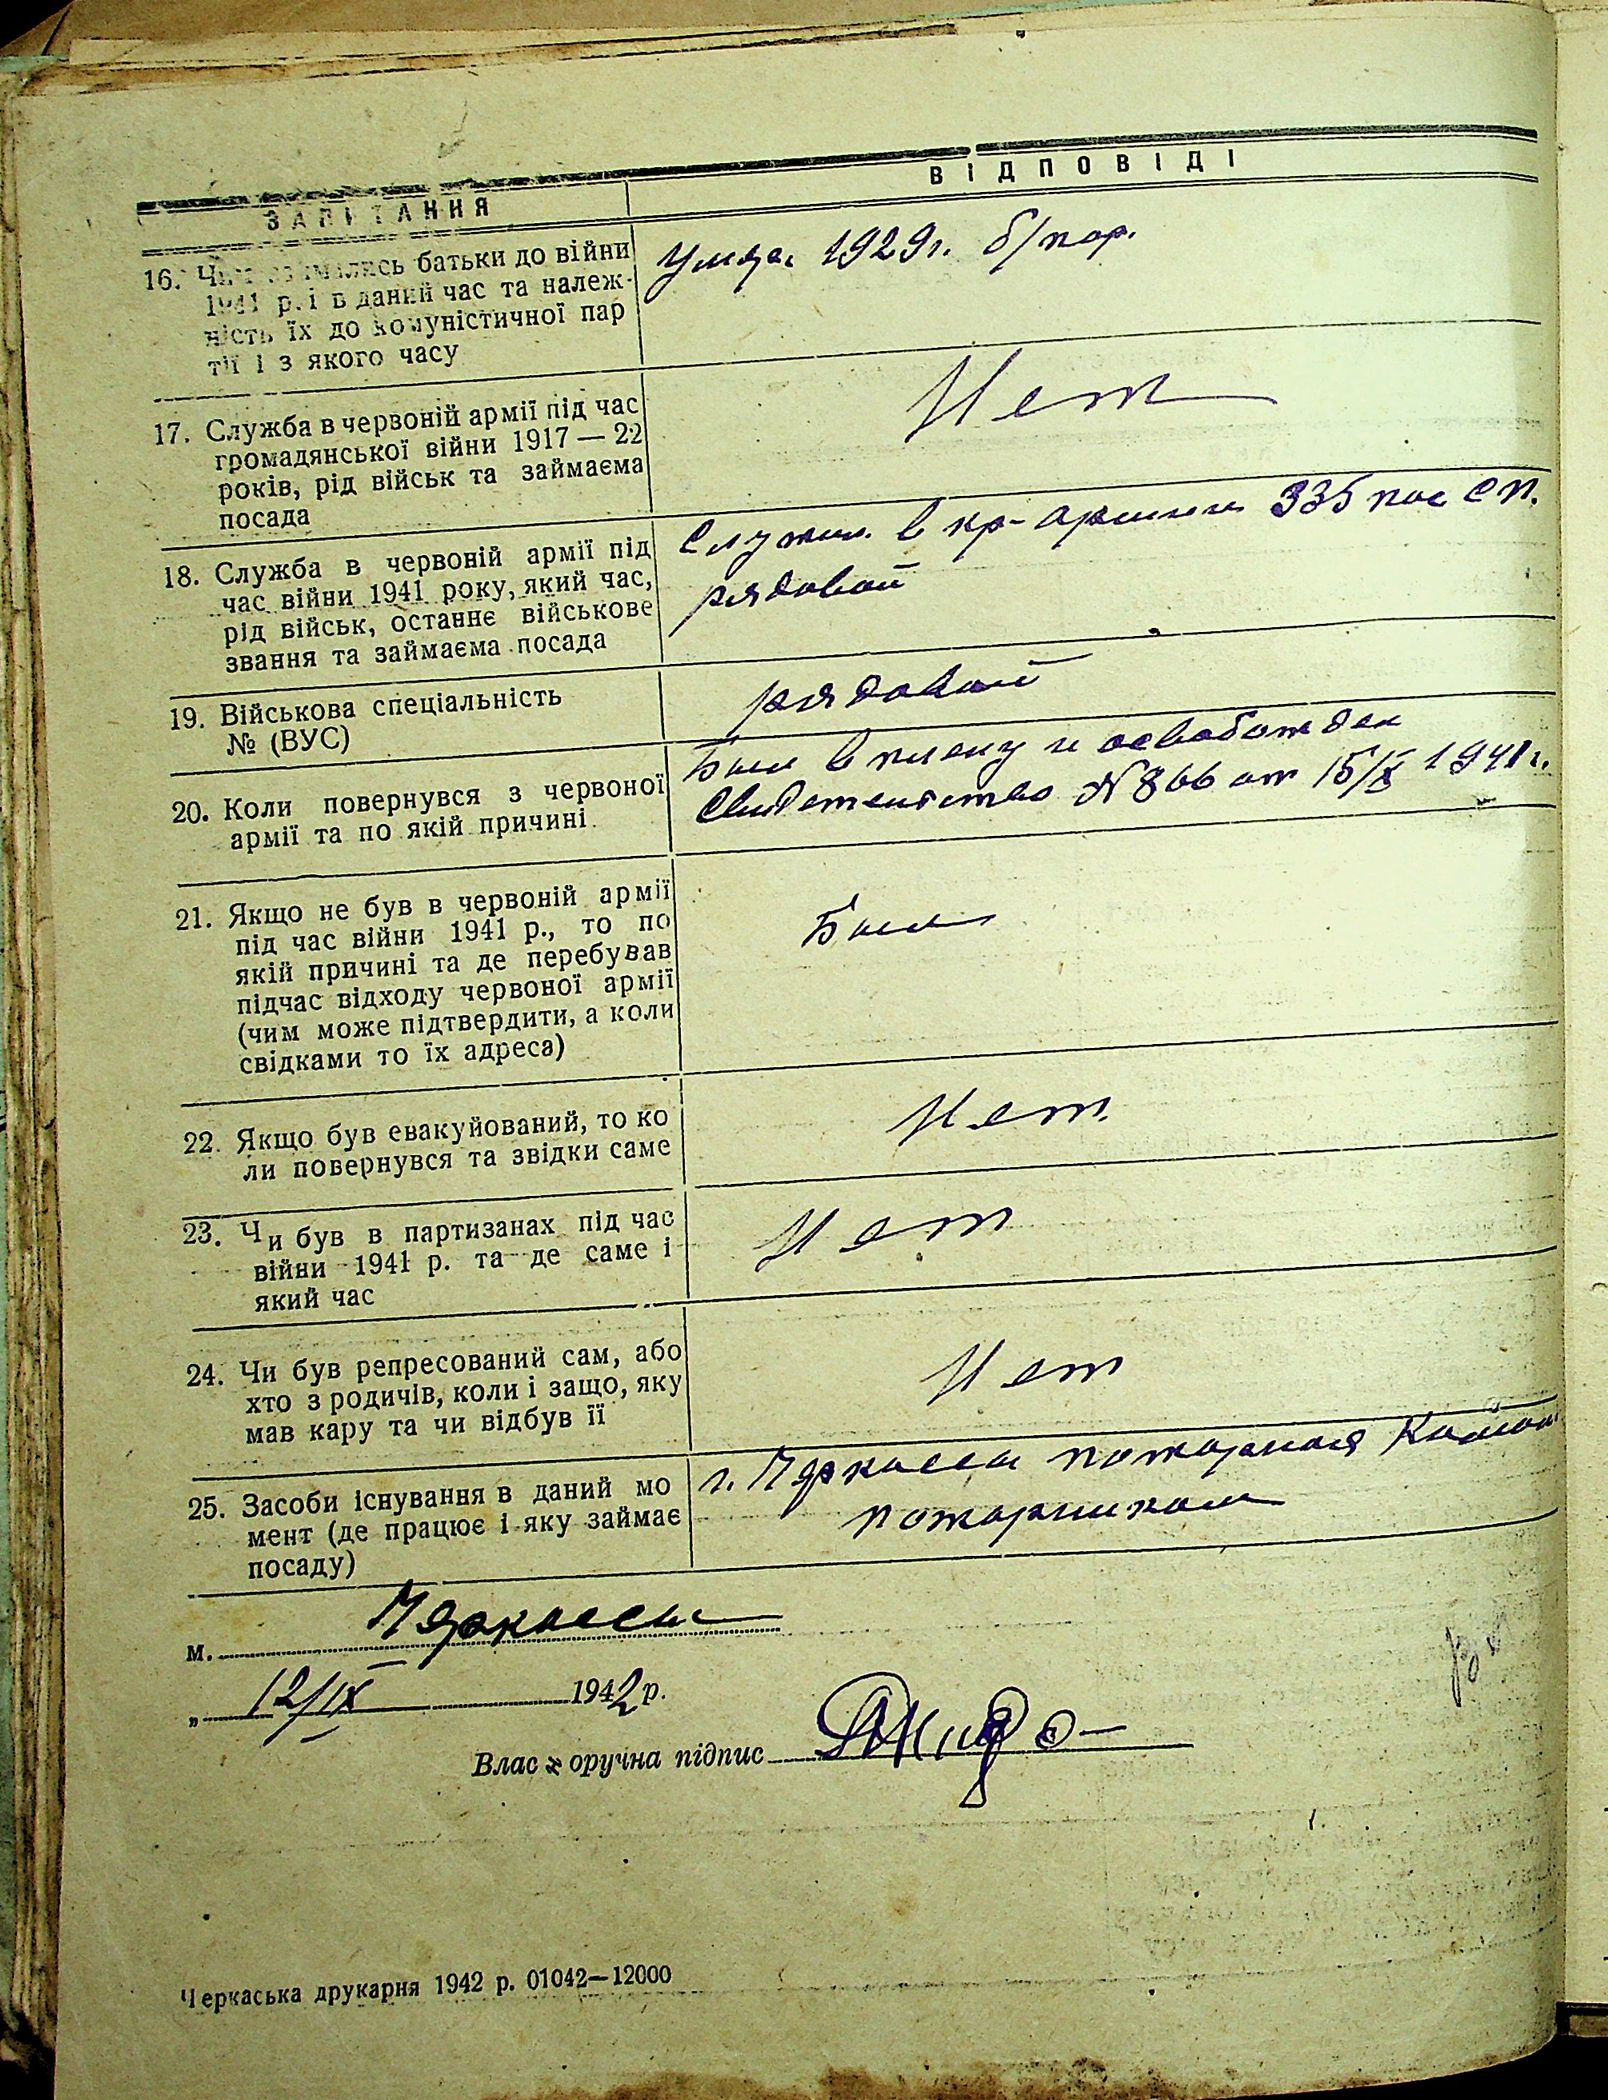 ЗАПИТАННЯ
ВІДПОВІДІ
16. Чим займались батьки до війни
1941 р. і в даний час та належ-
ність їх до комуністичної пар
тії і з якого часу
1929 г. б/пар.
17. Служба в червоній армії під час
громадянської війни 1917 — 22
років, рід військ та займаєма
посада
Нет
18. Служба в червоній армії під
час війни 1941 року, який час,
рід військ, останнє військове
звання та займаєма посада
Служил в кр-армии 335 СП.
рядовой
19. Військова спеціальність
№ (ВУС)
рядовой
20. Коли повернувся з червоної
армії та по якій причині
Был в плену и освобожден
Свидетельство N 866 от 15/X 1941 г.
21. Якщо не був в червоній армії
під час війни 1941 р., то по
якій причині та де перебував
підчас відходу червоної армії
(чим може підтвердити, а коли
свідками то їх адреса)
Был
22. Якщо був евакуйований, то ко
ли повернувся та звідки саме
Нет
23. Чи був в партизанах під час
війни 1941 р. та де саме і
який час
Нет
24. Чи був репресований сам, або
хто з родичів, коли і защо, яку
мав кару та чи відбув її
Нет
25. Засоби існування в даний мо
мент (де працює і яку займає
посаду)
г. Черкассы пожарная
пожарником
м. Черкассы
„ 12/IX 1942 р.
Власноручна підпис
Черкаська друкарня 1942 р. 01042—12000